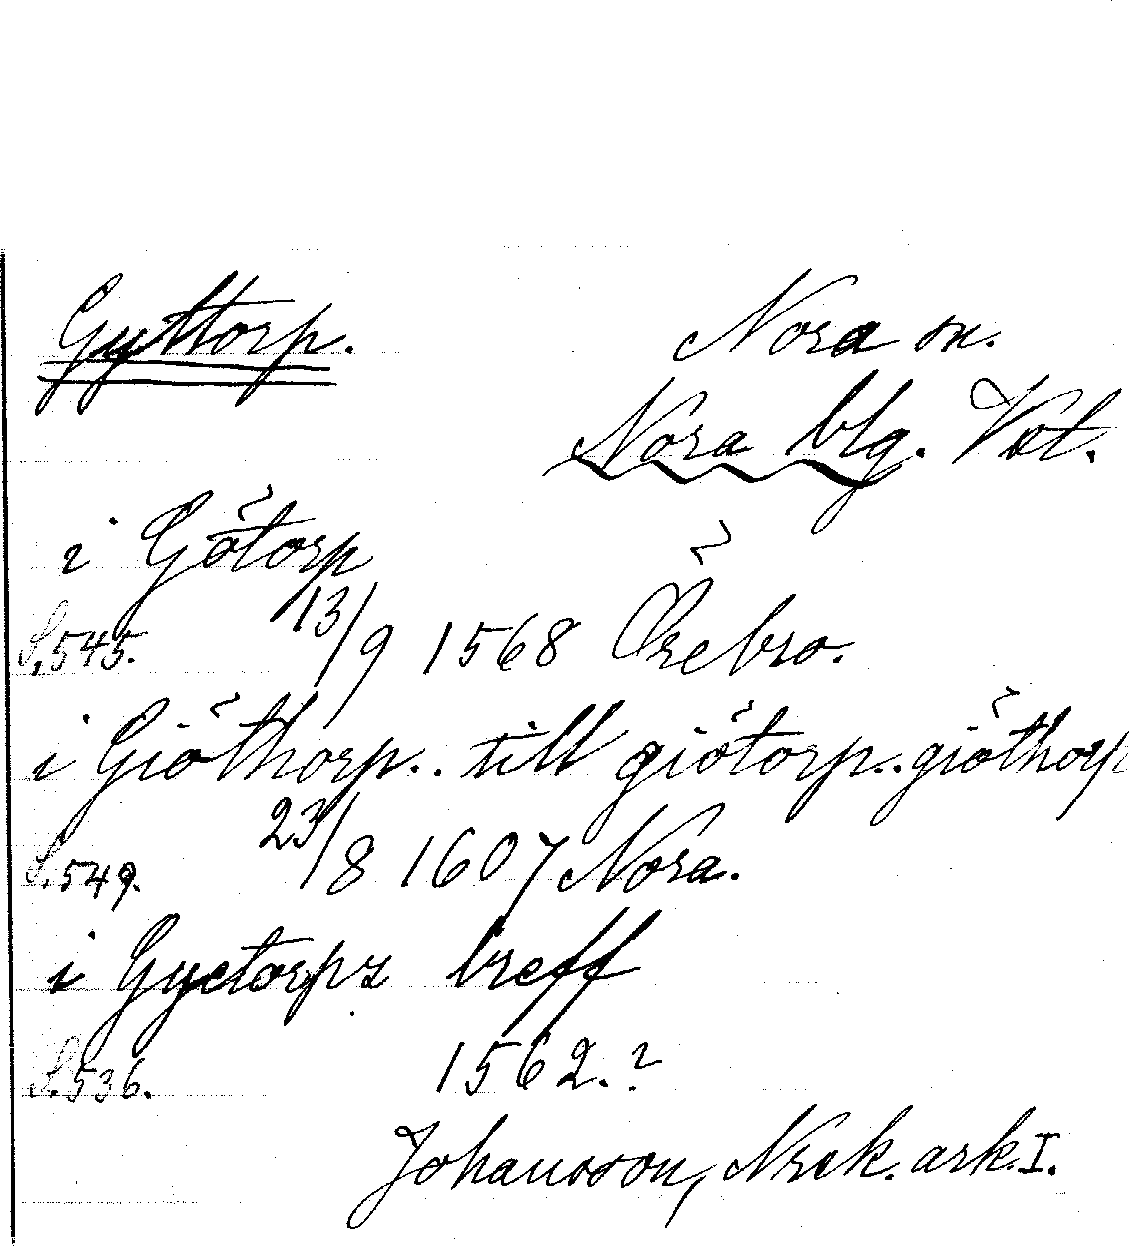 Gyttorp. Nora sn.
Nora blg. Vstl.
i Götorp
S.545. 13/9 1568 Örebro.
i Giöthorp.. till giötorp..giöthorp
S.549. 23/8 1607 Nora.
i Gyetorps breff
S.536. 1562.?
Johansson, Nrck. ark. I.